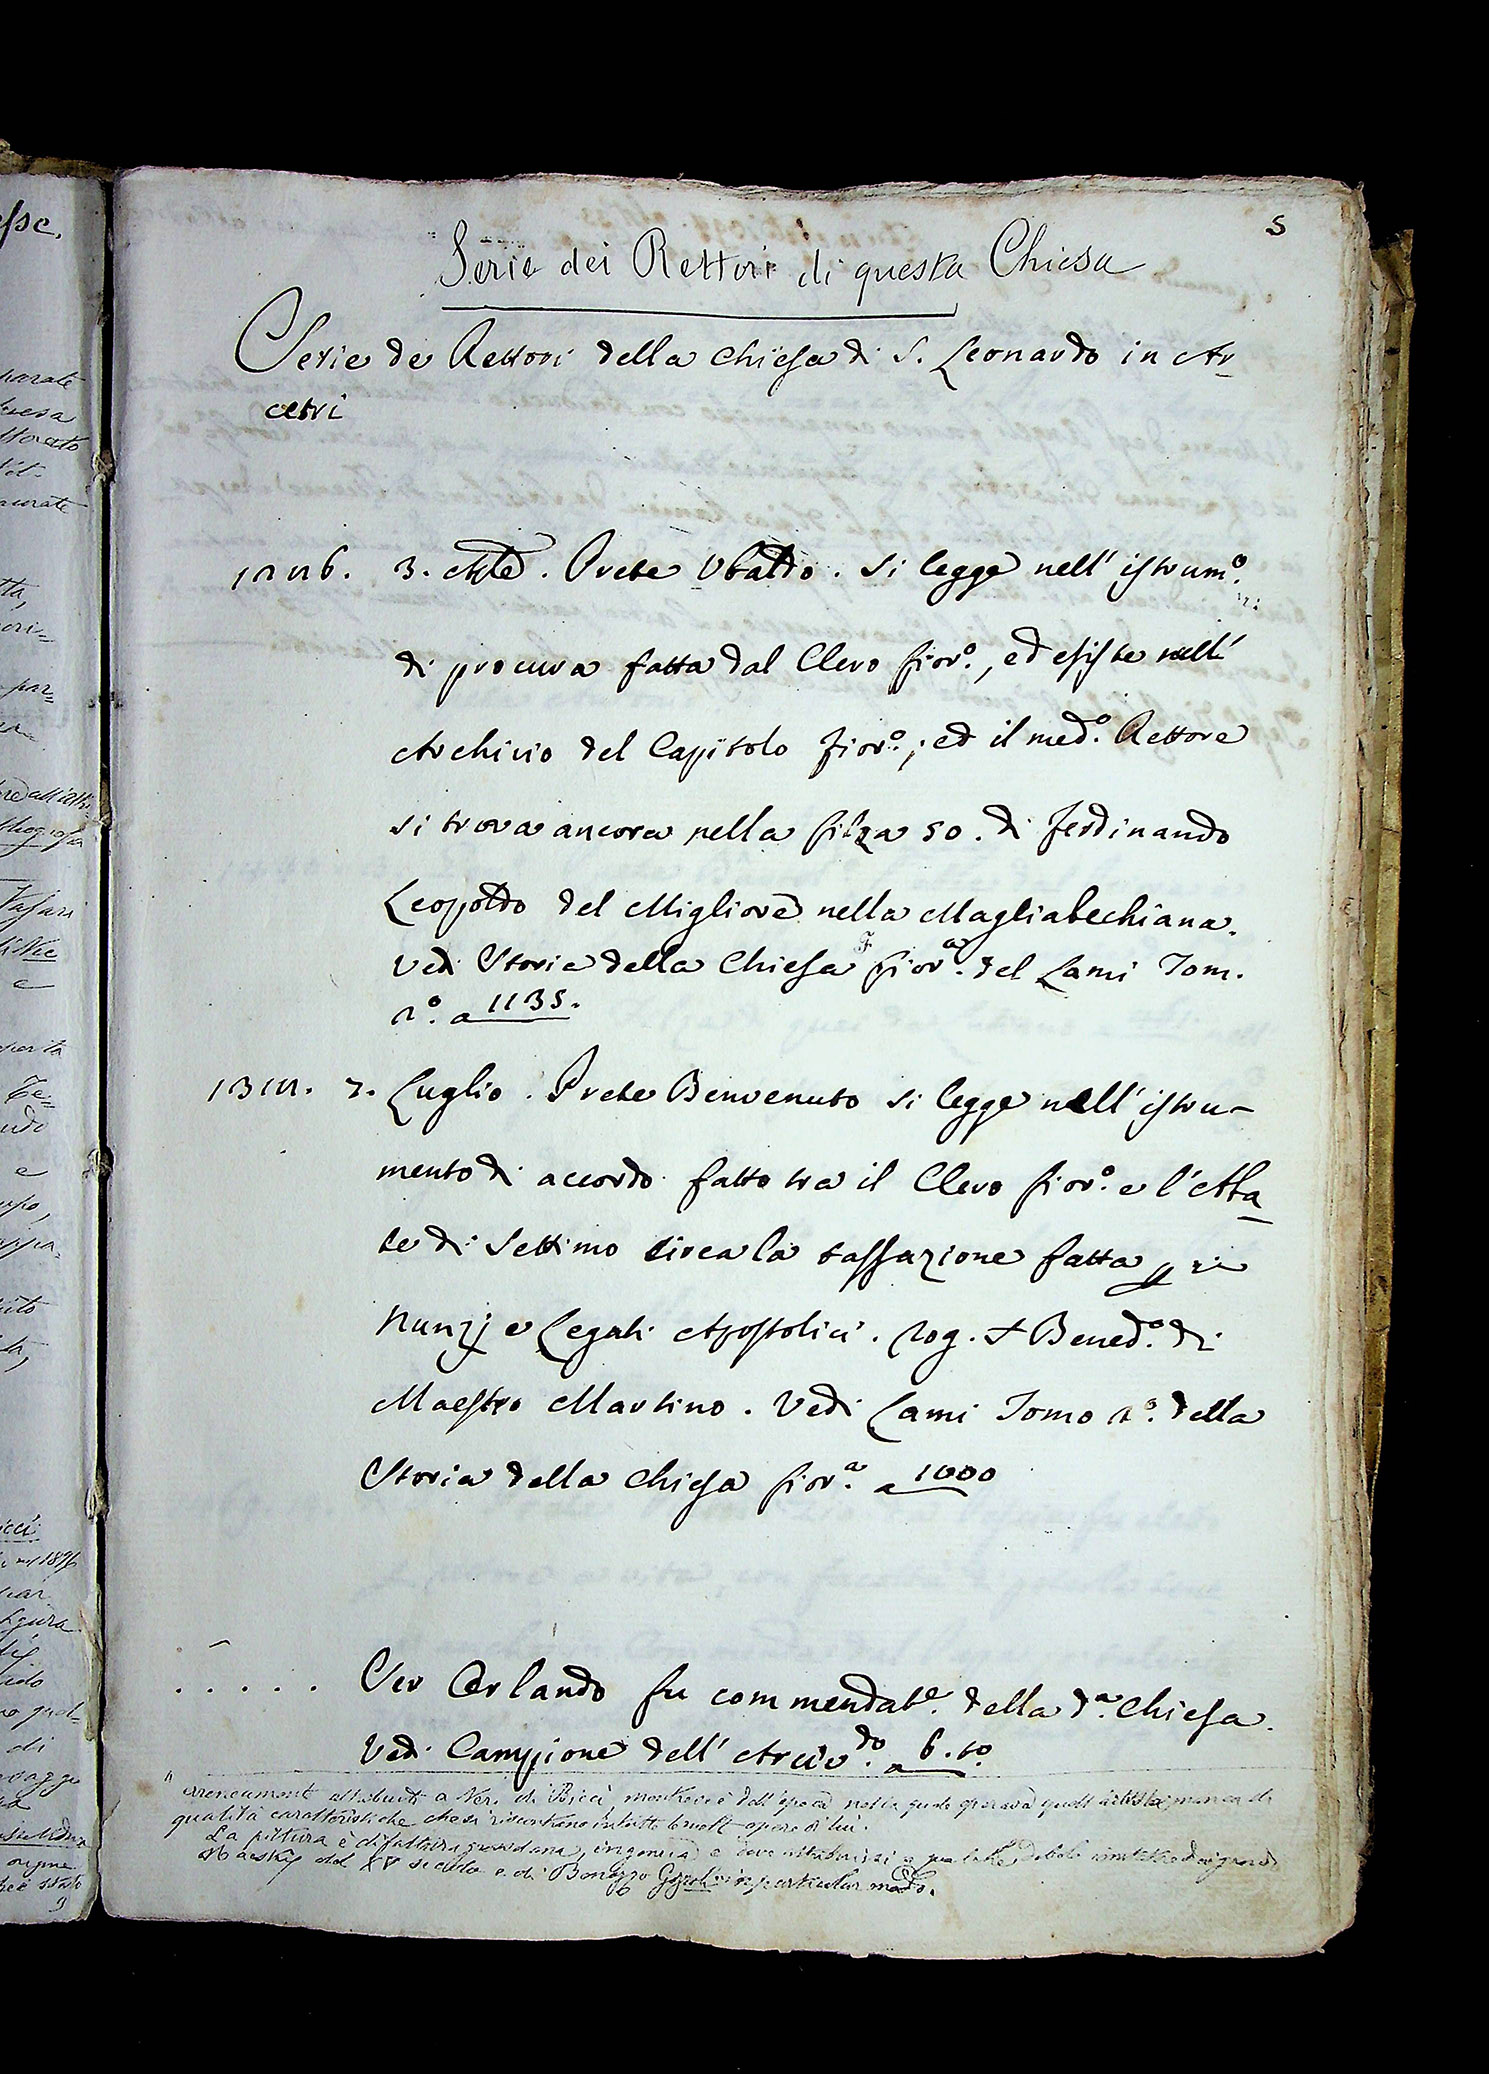 5
Serie dei Rettori di questa Chiesa
Serie de Rettori della Chiesa di S. Leonardo in Ar
cetri
1286. 3. Aple. Prete Ubaldo. Si legge nell' istrumo.
di procura fatta dal Clero fioro., ed esiste nell'
Archivio del Capitolo fioro.; ed il medo. Rettore
si trova ancora nella filza 50. di Ferdinando
Leopoldo del Migliore nella Magliabechiana.
Vedi Storia della Chiesa fiora. del Lami Tom.
2o. a 1135.
Luglio. Prete Benvenuto si legge nell' istru-
mento di accordo fatto tra il Clero fioro. e l'Aba
te di Settimo circa la tassazione fatta
Nunzj e Legati Apostolici. Rog. Benedo. di
Maestro Martino. Vedi Lami Tomo 2o. della
Storia della Chiesa fiora. a
. . . . . Ser Orlando fu commendate. della da. Chiesa.
Vedi Campione dell' Arcivdo. a
erroneamente attribuita a Neri di Bicci, mentre è dell'epoca nella quale operava quell' artista manca di
qualità caratteristiche che si riscontrano in tutte le opere di lui.
La pittura è di fattura grossolana, ingenua e deve attribuirsi a qualche debole imitatore dei grandi
Maestri del XV secolo e di Benozzo Gozzoli in particolar modo.